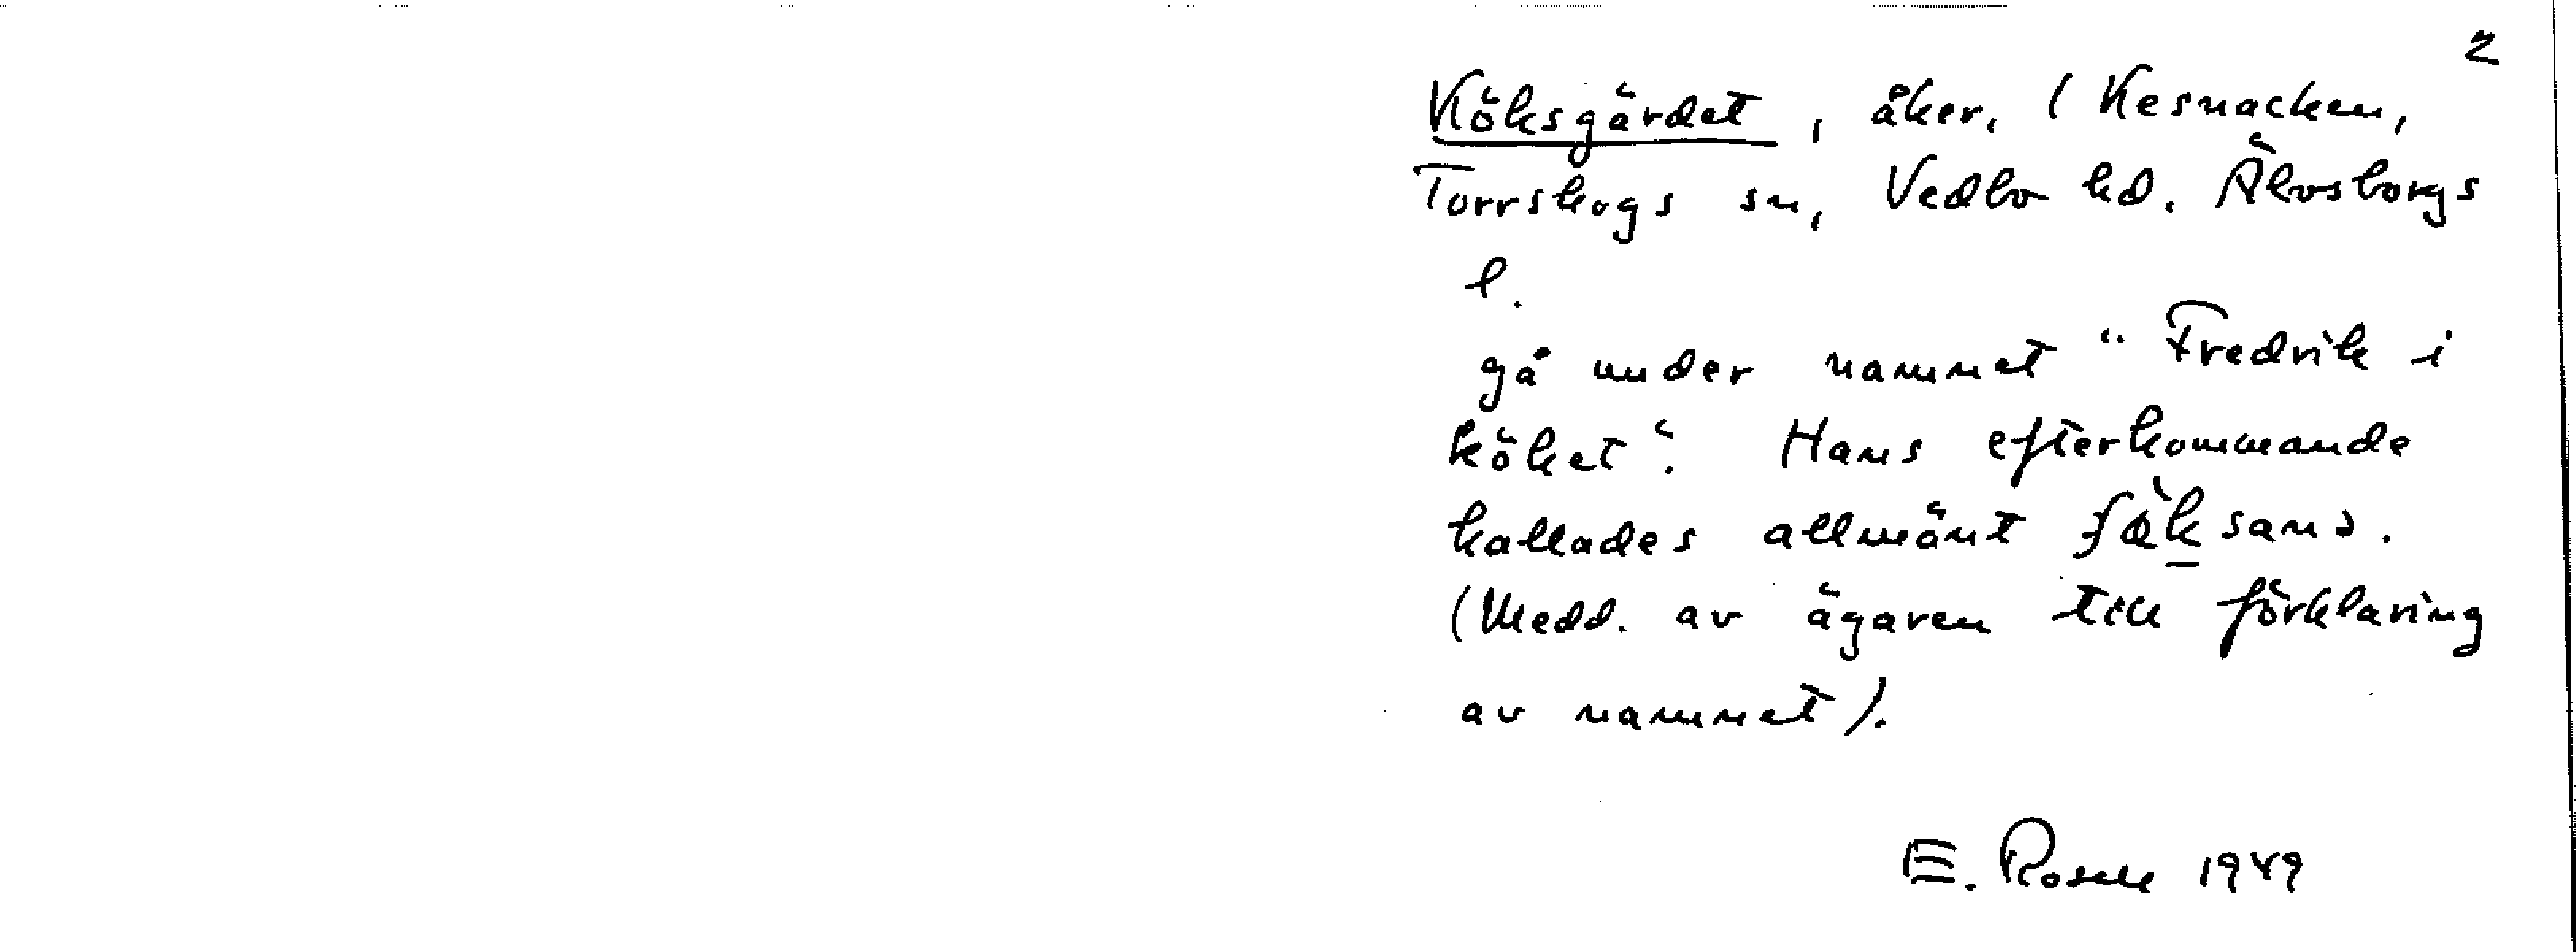 2
Köksgärdet, åker, (Kesnacken,
Torrskogs sn, Vedbo hd. Älvsborgs
l.
gå under namnet "Fredrik i
köket". Hans efterkommande
kallades allmänt
(Medd. av ägaren till förklaring
av namnet).
E. Rosell 1949